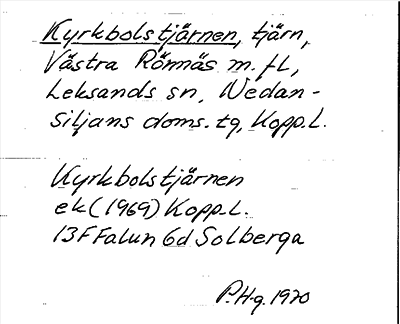 Kyrkbolstjärnen, tjärn,
Västra Rönnäs m.fl.,
Leksands sn, Nedan-
Siljans doms. tg, Kopp.l.
Kyrkbolstjärnen
ek (1969) Kopp.l.
13F Falun 6d Solberga
P.Hg. 1970